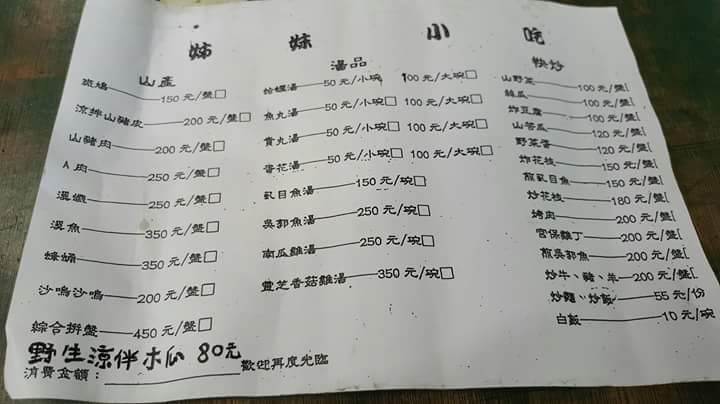 姊 妹 小 吃
山產
斑鳩——150 元/盤□
涼拌山豬皮——200 元/盤□
山豬肉——200 元/盤□
A 肉——250 元/盤□
溪蝦——250 元/盤□
溪魚——350 元/盤□
——350 元/盤□
沙嗚沙嗚——200 元/盤□
綜合拼盤——450 元/盤□
湯品
蛤蜊湯——50 元/小碗□ 100 元/大碗□
魚丸湯——50 元/小碗□ 100 元/大碗□
貢丸湯——50 元/小碗□ 100 元/大碗□
香花湯——50 元/小碗□ 100 元/大碗□
虱目魚湯——150 元/碗□
吳郭魚湯——250 元/碗□
南瓜雞湯——250 元/碗□
靈芝香菇雞湯——350 元/碗□
快炒
山野菜——100 元/盤
絲瓜——100 元/盤
炸豆腐——100 元/盤
山苦瓜——120 元/盤
野菜香——120 元/盤
炸花枝——150 元/盤
煎虱目魚——150 元/盤
炒花枝——180 元/盤
烤肉——200 元/盤
宮保雞丁——200 元/盤
煎吳郭魚——200 元/盤
炒牛、豬、羊——200 元/盤
炒麵、炒飯——55 元/份
白飯——10 元/碗
野生涼伴木瓜 80元
消費金額：__________歡迎再度光臨